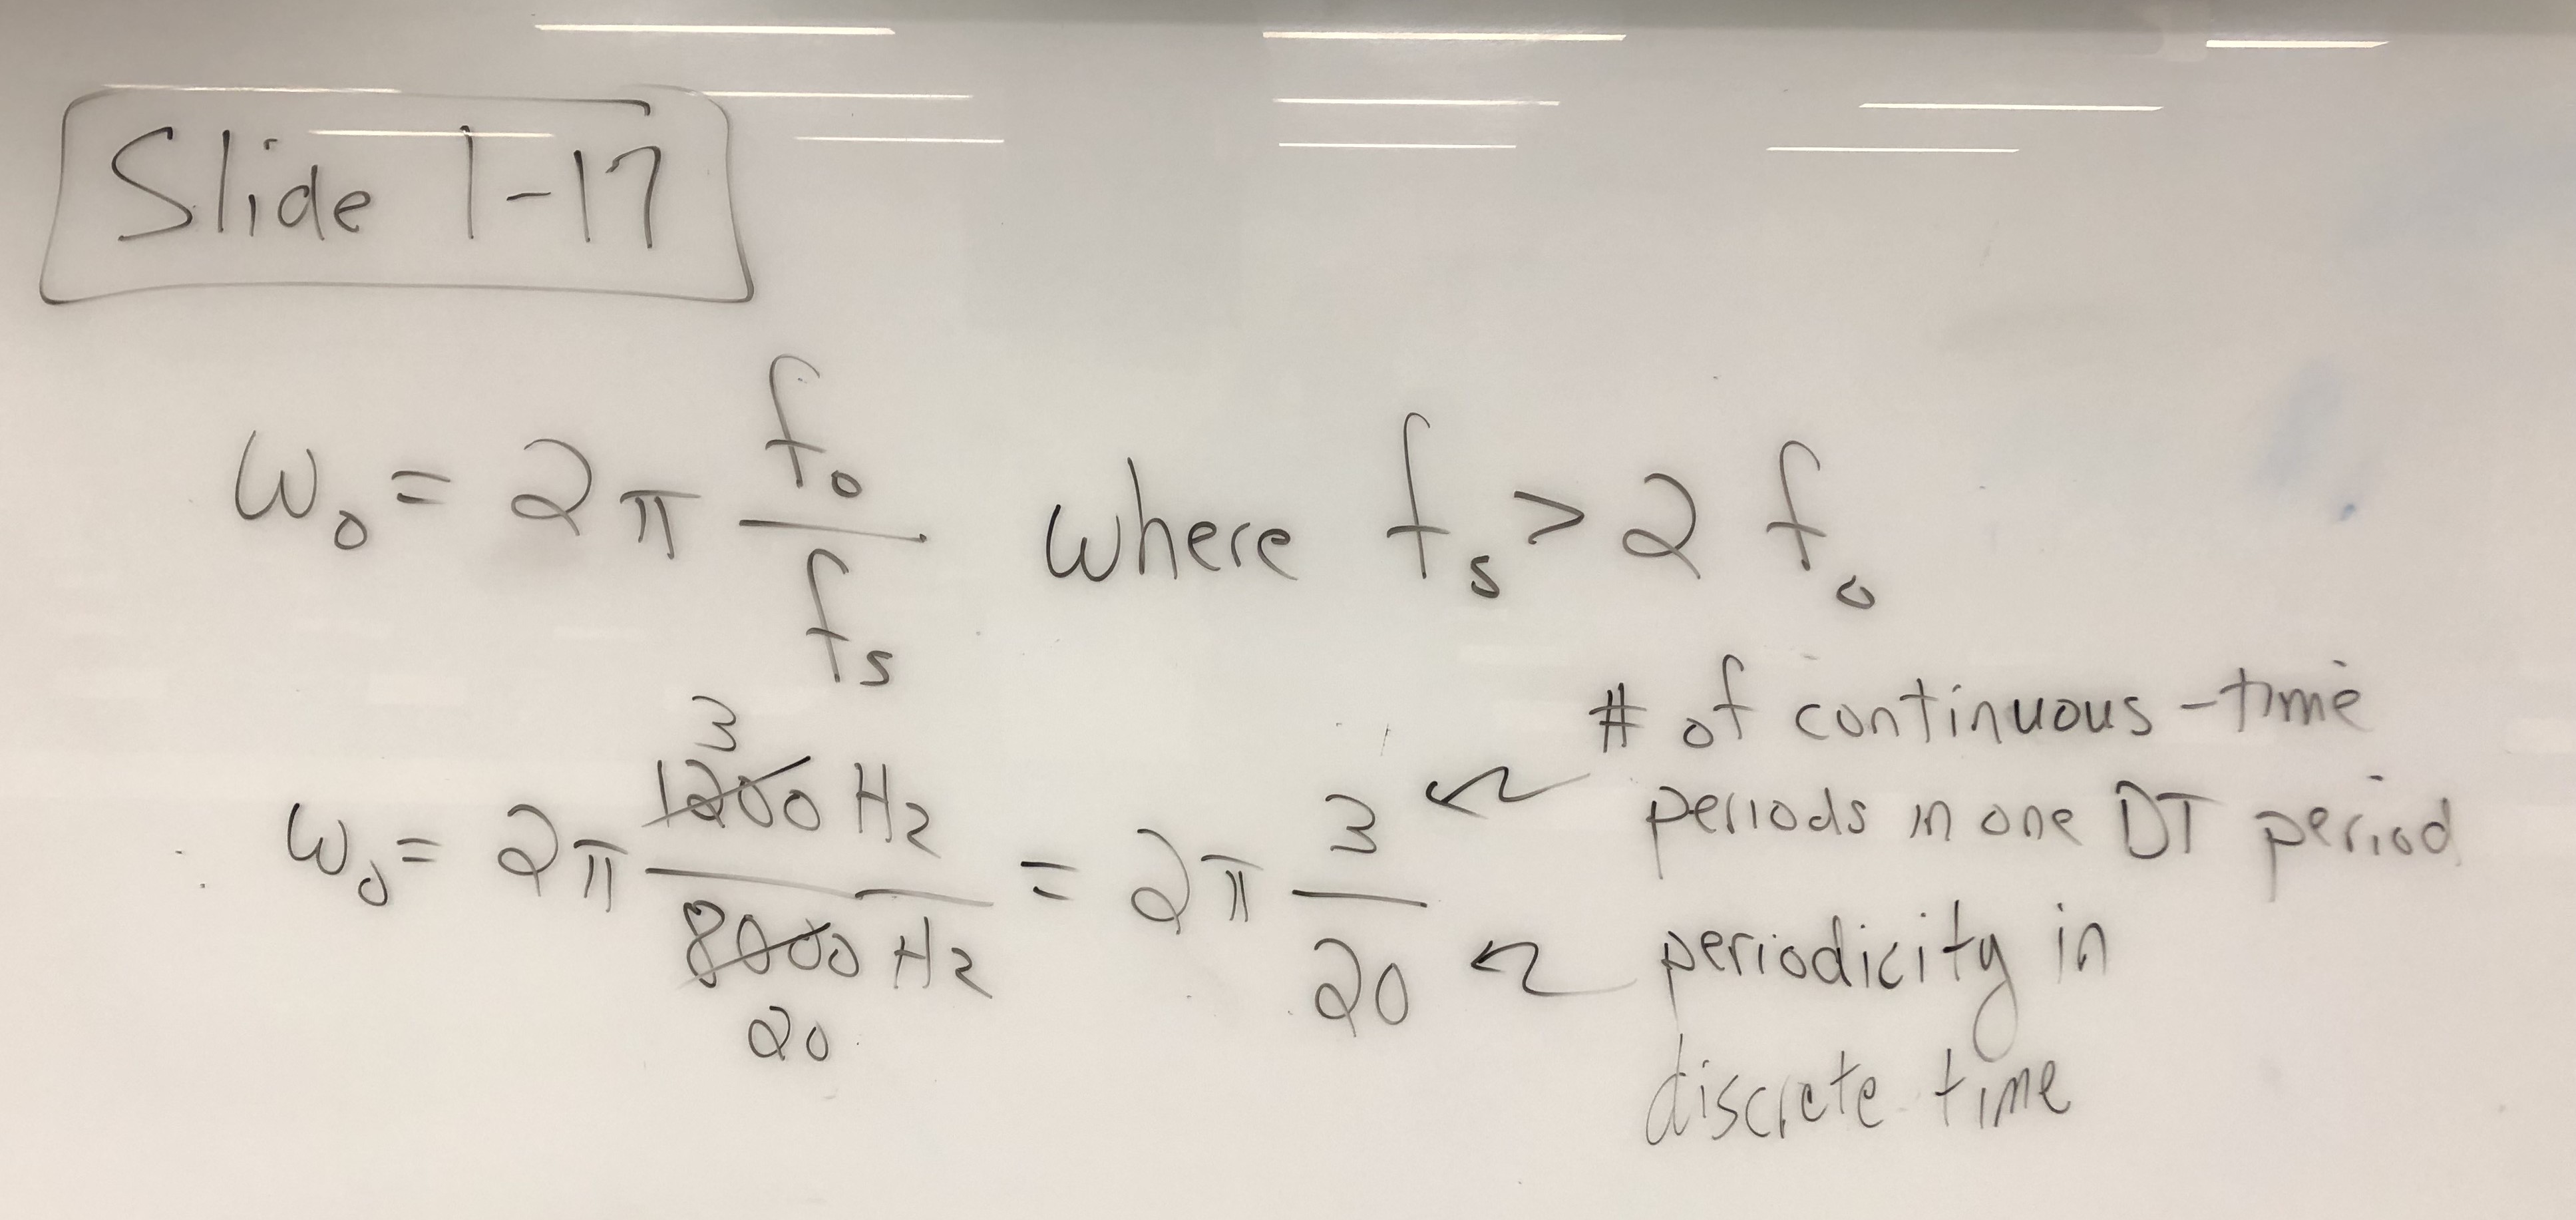 Slide 1-17
ω₀ = 2π f₀/fₛ where fₛ > 2 f₀
ω₀ = 2π 1200 Hz/8000 Hz = 2π 3/20
3
20
# of continuous-time
periods in one DT period
periodicity in
discrete time